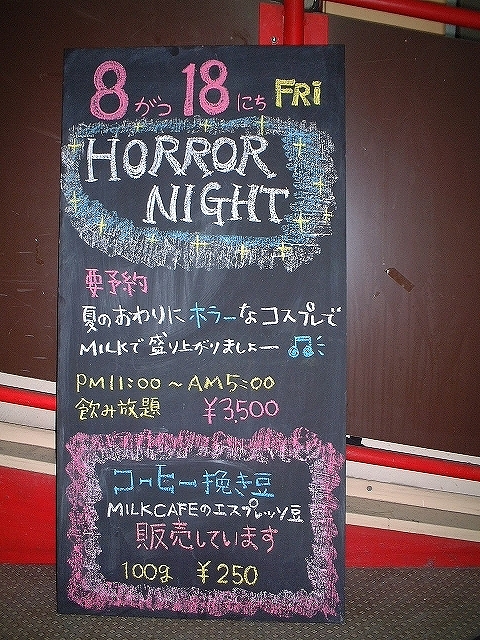 8がつ18にち FRi
HORROR
NIGHT
要予約
夏のおわりにホラーなコスプレで
MILKで盛り上がりましょー♫
PM11:00～AM5:00
飲み放題 ¥3,500
コーヒー挽き豆
MILKCAFEのエスプレッソ豆
販売しています
100g ¥250